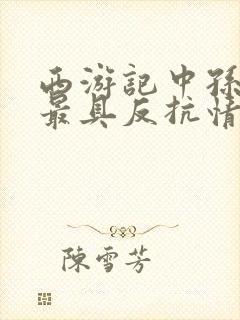 西游記中孫
最具反抗情
陳雪芳